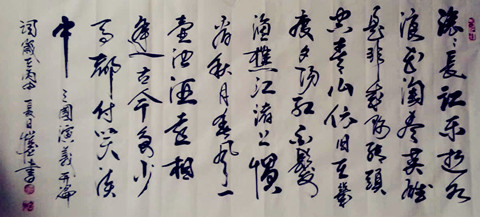 滚滚長江东逝水
浪花淘尽英雄
是非成败转頭
空青山依旧在幾
度夕阳红白髮
渔樵江渚上惯
看秋月春风一
壶浊酒喜相
逢古今多少
事都付笑谈
中 三國演義开篇
词岁在丙申書